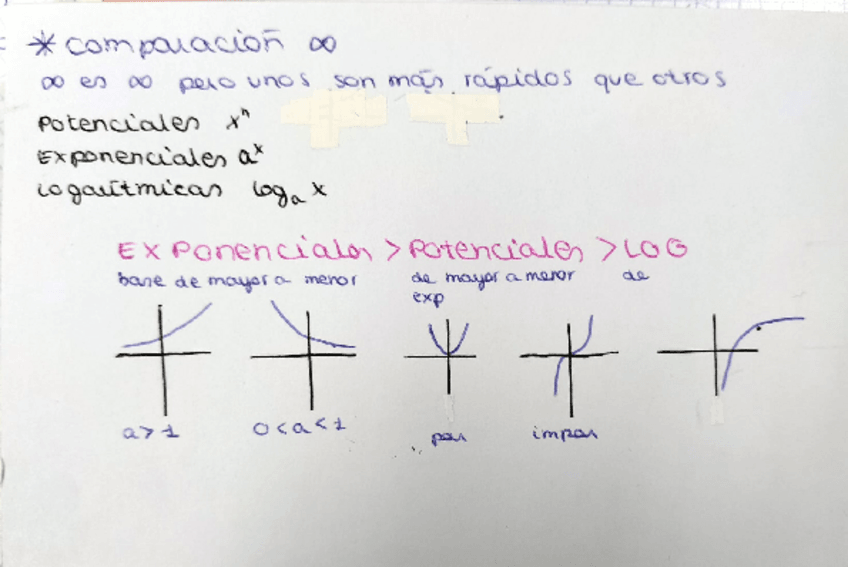 * Comparación ∞
∞ es ∞ pero unos son más rápidos que otros
Potenciales xⁿ
Exponenciales aˣ
Logarítmicas logₐ x
Exponenciales > Potenciales > LOG
base de mayor a menor de mayor a menor de
exp
a > 1 0 < a < 1 par impar